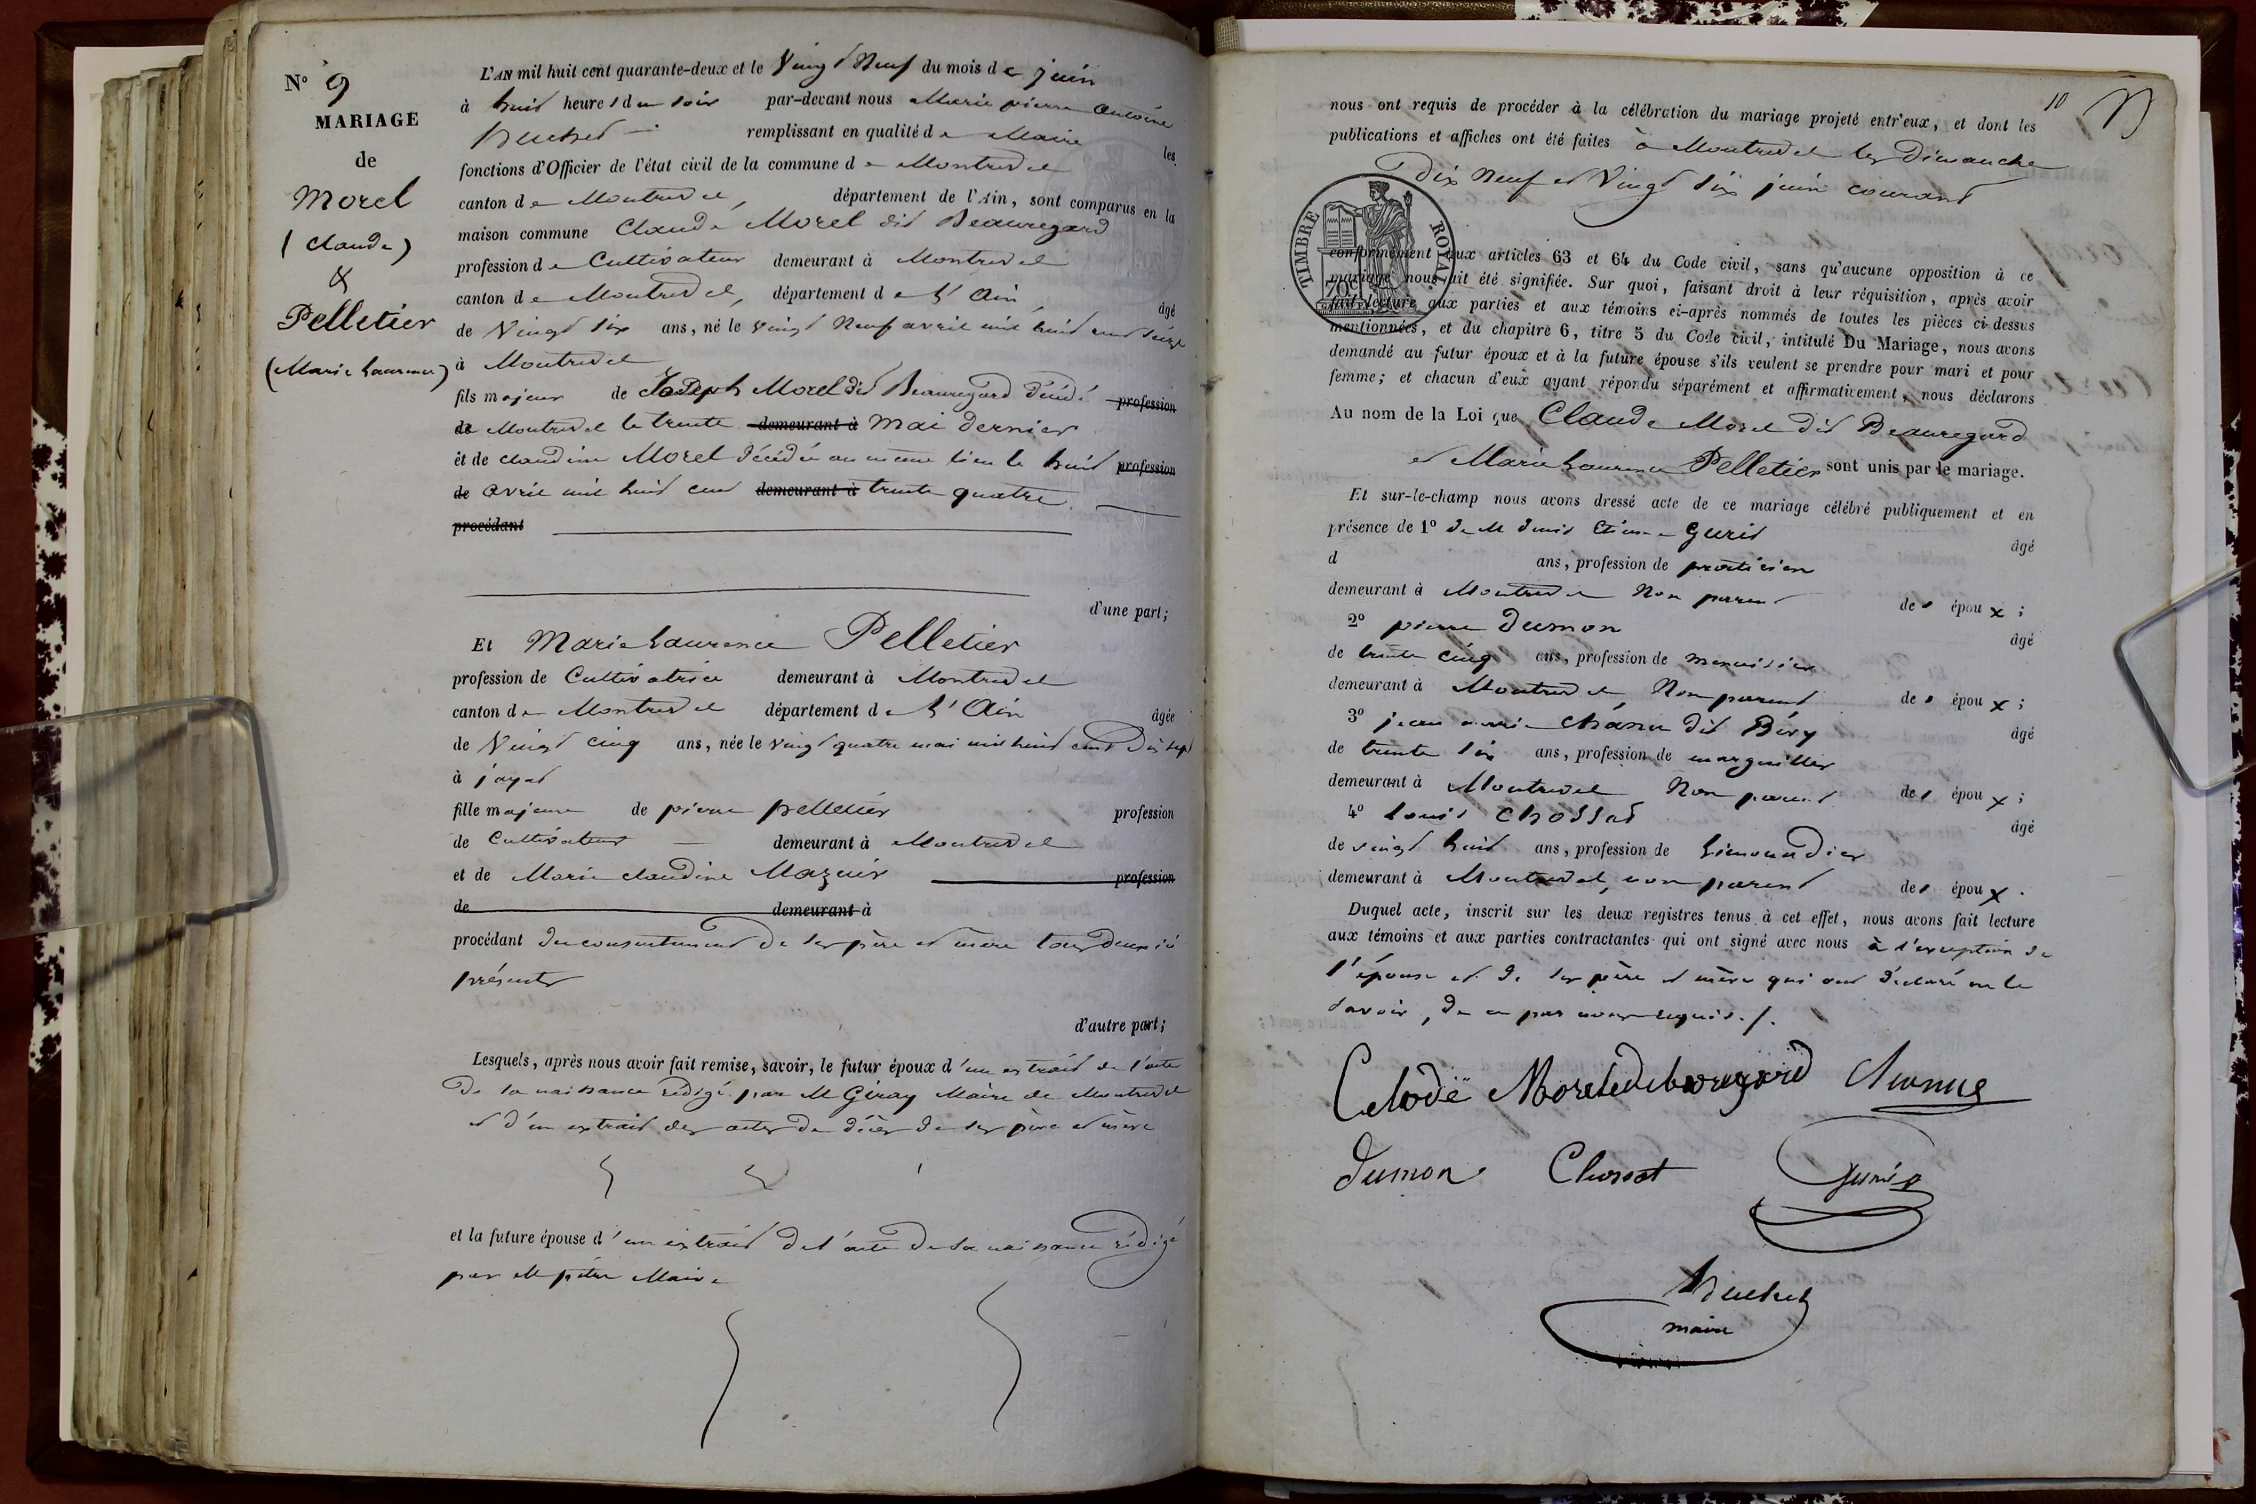 N° 9
MARIAGE
de
Morel
(Claude)
&
Pelletier
(Marie Laurence)
L'AN mil huit cent quarante-deux et le Vingt Neuf du mois de juin
à huit heures du soir par-devant nous Marie pierre Antoine
remplissant en qualité de Maire les
fonctions d'Officier de l'état civil de la commune de Montrevel
canton de Montrevel, département de l'Ain, sont comparus en la
maison commune Claude Morel dit Beauregard
profession de Cultivateur demeurant à Montrevel
canton de Montrevel, département de L'Ain, âgé
de Vingt six ans, né le vingt Neuf avril mil huit cent seize
à Montrevel
fils majeur de Joseph Morel dit Beauregard décédé profession
de Montrevel le trente demeurant à mai dernier
et de claudine Morel décédée au même lieu le huit profession
de avril mil huit cent demeurant à trente quatre
procédant
d'une part;
Et Marie Laurence Pelletier
profession de Cultivatrice demeurant à Montrevel
canton de Montrevel département de L'Ain âgée
de Vingt cinq ans, née le vingt quatre mai mil huit cent dix sept
à jayat
fille majeure de pierre pelletier profession
de Cultivateur demeurant à Montrevel
et de Marie claudine Mazuir profession
de demeurant à
procédant du consentement de ses père et mère tous deux ici
présents
d'autre part;
Lesquels, après nous avoir fait remise, savoir, le futur époux d'un extrait de l'acte
de sa naissance rédigé par M Giray Maire de Montrevel
et d'un extrait des actes de décès de ses père et mère
et la future épouse d'un extrait de l'acte de sa naissance rédigé
par M pitre Maire
10
nous ont requis de procéder à la célébration du mariage projeté entr'eux, et dont les
publications et affiches ont été faites à Montrevel les Dimanche
Dix Neuf et Vingt six juin courant
TIMBRE ROYAL
conformément aux articles 63 et 64 du Code civil, sans qu'aucune opposition à ce
mariage nous ait été signifiée. Sur quoi, faisant droit à leur réquisition, après avoir
fait lecture aux parties et aux témoins ci-après nommés de toutes les pièces ci-dessus
mentionnées, et du chapitre 6, titre 5 du Code civil, intitulé Du Mariage, nous avons
demandé au futur époux et à la future épouse s'ils veulent se prendre pour mari et pour
femme; et chacun d'eux ayant répondu séparément et affirmativement, nous déclarons
Au nom de la Loi que Claude Morel dit Beauregard
et Marie Laurence Pelletier sont unis par le mariage.
Et sur-le-champ nous avons dressé acte de ce mariage célébré publiquement et en
présence de 1° de M Etienne Guris âgé
d ans, profession de praticien
demeurant à Montrevel Non parent des époux;
2° pierre Dumon âgé
de trente cinq ans, profession de menuisier
demeurant à Montrevel Non parent des époux;
3° jean marie chanu dit Béry âgé
de trente six ans, profession de marguiller
demeurant à Montrevel Non parent des époux;
4° Louis chossat âgé
de vingt huit ans, profession de Limonadier
demeurant à Montrevel, non parent des époux.
Duquel acte, inscrit sur les deux registres tenus à cet effet, nous avons fait lecture
aux témoins et aux parties contractantes qui ont signé avec nous à l'exception de
l'épouse et de ses père et mère qui ont déclaré ne le
savoir, de ce par nous requis./.
Clodë
Dumon Chossat
maire